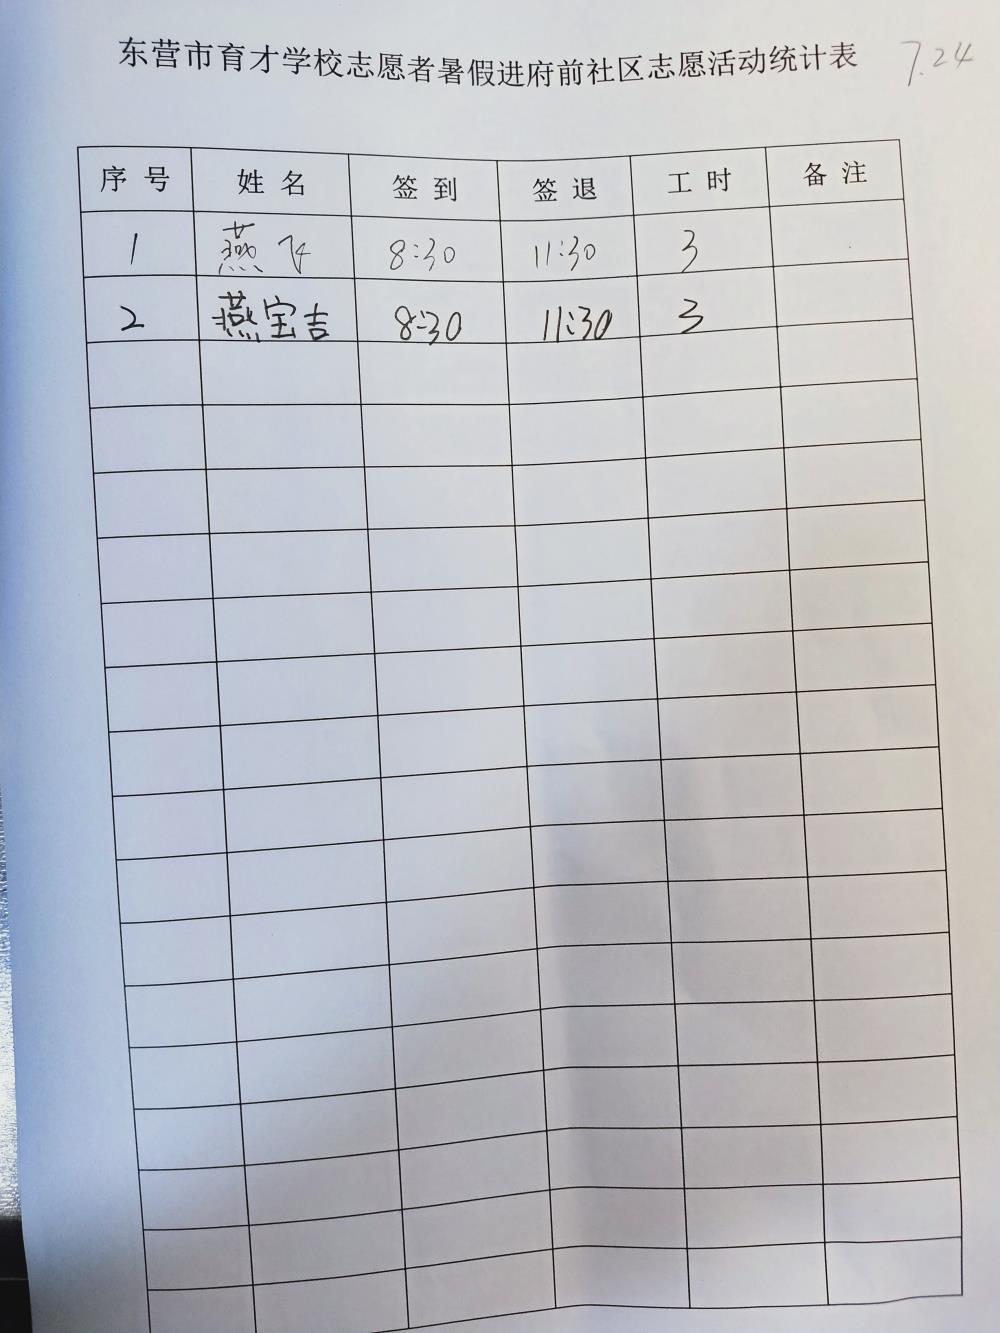 东营市育才学校志愿者暑假进府前社区志愿活动统计表 7.24
序号 姓名 签到 签退 工时 备注
1 燕飞 8:30 11:30 3
2 燕宝吉 8:30 11:30 3